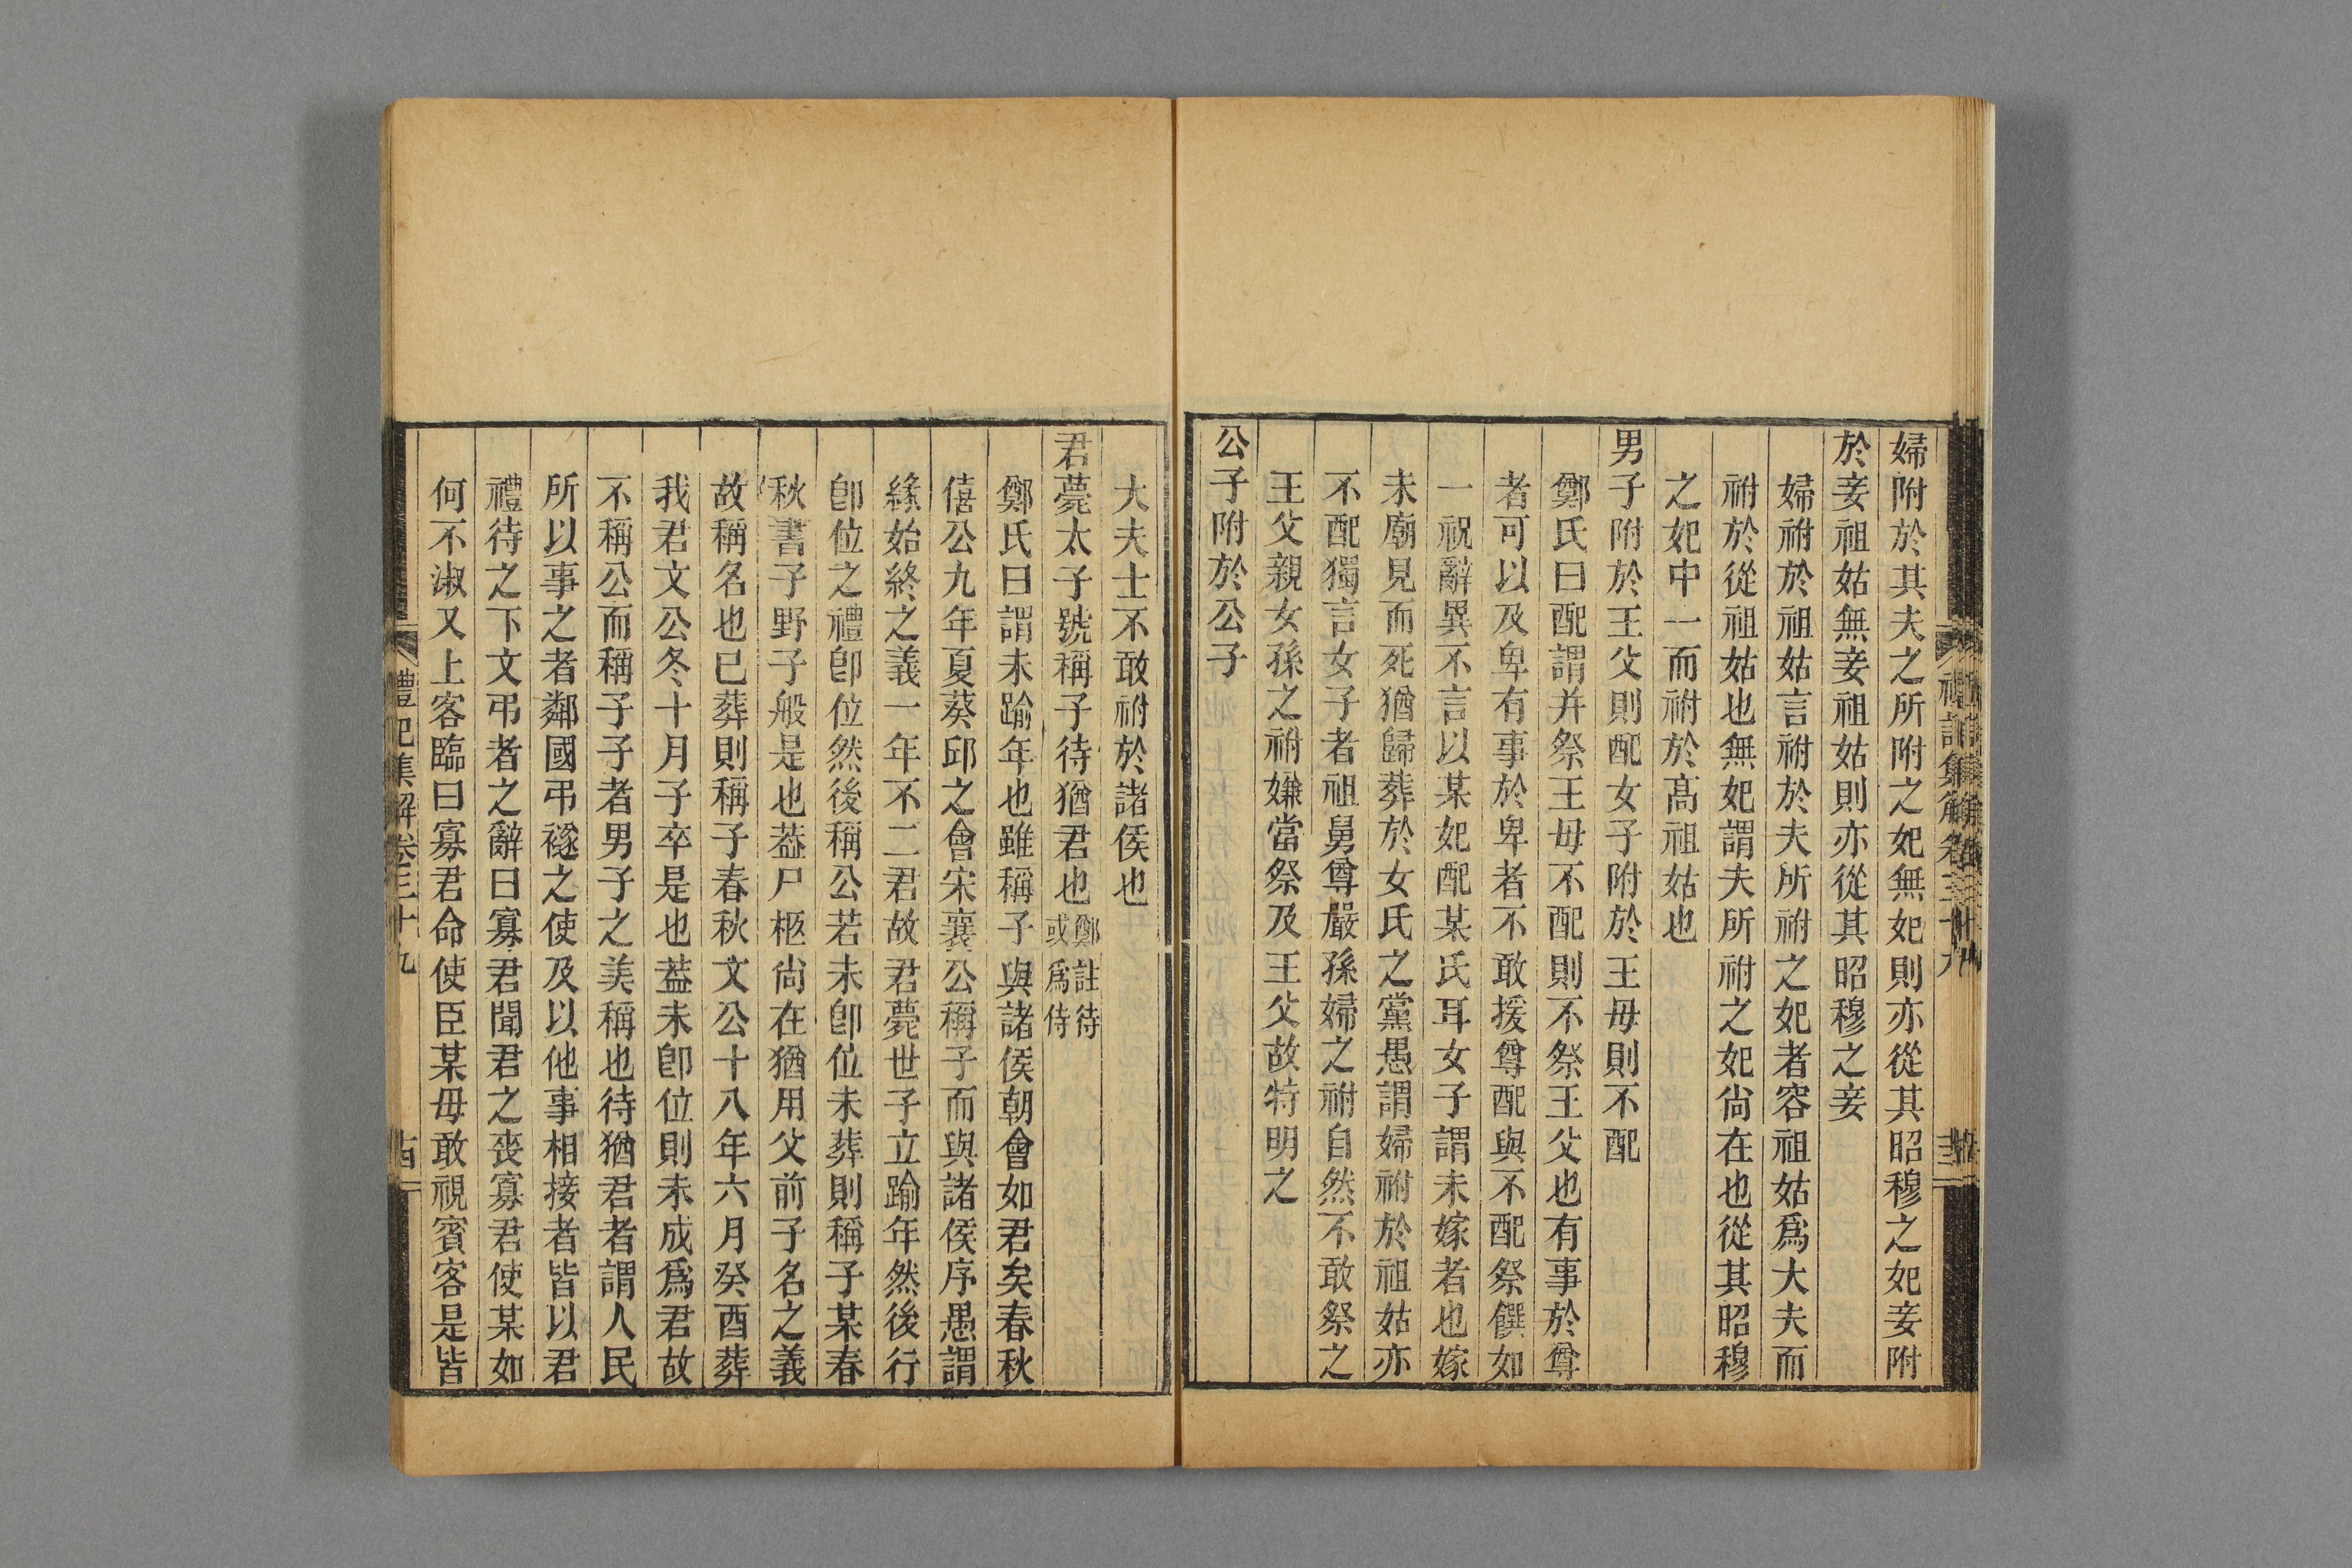 婦附於其夫之所附之妃無妃則亦從其昭穆之妃妾附
於妾祖姑無妾祖姑則亦從其昭穆之妾
婦祔於祖姑言祔於夫所祔之妃者容祖姑爲大夫而
祔於從祖姑也無妃謂夫所祔之妃尙在也從其昭穆
之妃中一而祔於高祖姑也
男子附於王父則配女子附於王母則不配
鄭氏曰配謂并祭王母不配則不祭王父也有事於尊
者可以及卑有事於卑者不敢援尊配與不配祭饌如
一祝辭異不言以某妃配某氏耳女子謂未嫁者也嫁
未廟見而死猶歸葬於女氏之黨愚謂婦祔於祖姑亦
不配獨言女子者祖舅尊嚴孫婦之祔自然不敢祭之
王父親女孫之祔嫌當祭及王父故特明之
公子附於公子
大夫士不敢祔於諸侯也
君薨太子號稱子待猶君也鄭註待或爲侍
鄭氏曰謂未踰年也雖稱子與諸侯朝會如君矣春秋
僖公九年夏葵邱之會宋襄公稱子而與諸侯序愚謂
緣始終之義一年不二君故君薨世子立踰年然後行
卽位之禮卽位然後稱公若未卽位未葬則稱子某春
秋書子野子般是也葢尸柩尙在猶用父前子名之義
故稱名也已葬則稱子春秋文公十八年六月癸酉葬
我君文公冬十月子卒是也葢未卽位則未成爲君故
不稱公而稱子子者男子之美稱也待猶君者謂人民
所以事之者鄰國弔襚之使及以他事相接者皆以君
禮待之下文弔者之辭曰寡君聞君之喪寡君使某如
何不淑又上客臨曰寡君命使臣某毋敢視賓客是皆
禮記集解卷三十九
古